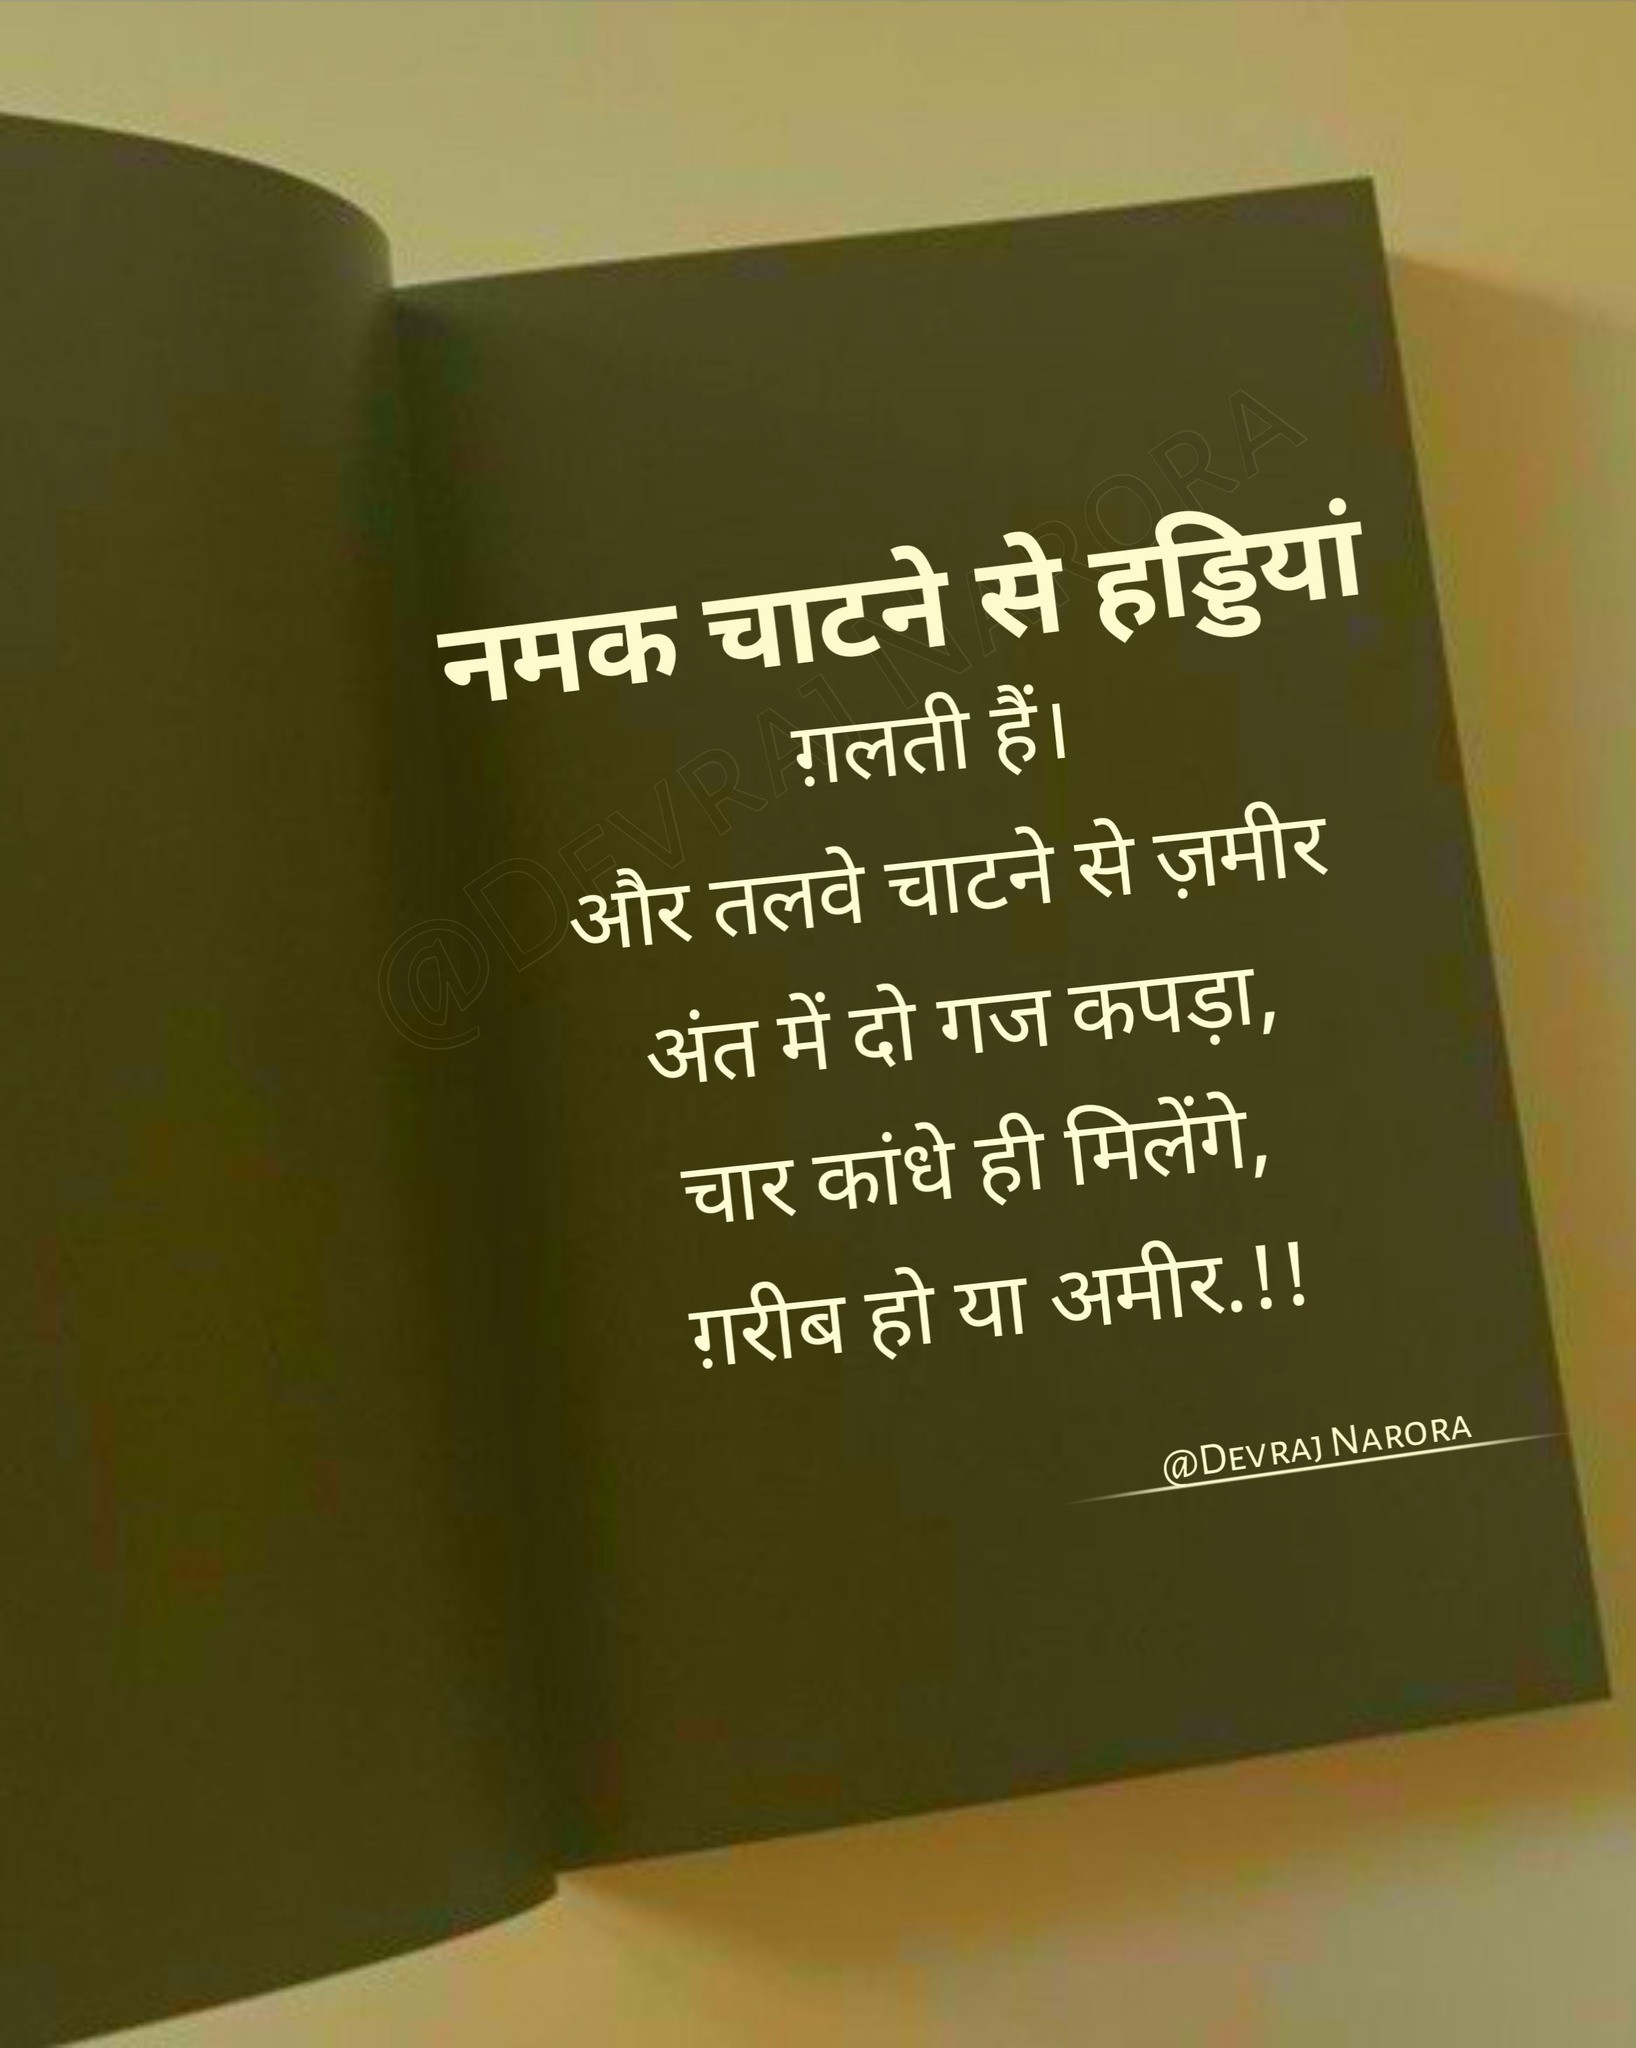 नमक चाटने से हड्डियां
ग़लती हैं।
और तलवे चाटने से ज़मीर
अंत में दो गज कपड़ा,
चार कांधे ही मिलेंगे,
ग़रीब हो या अमीर.!!
@Devraj Narora
@DEVRAJ NARORA